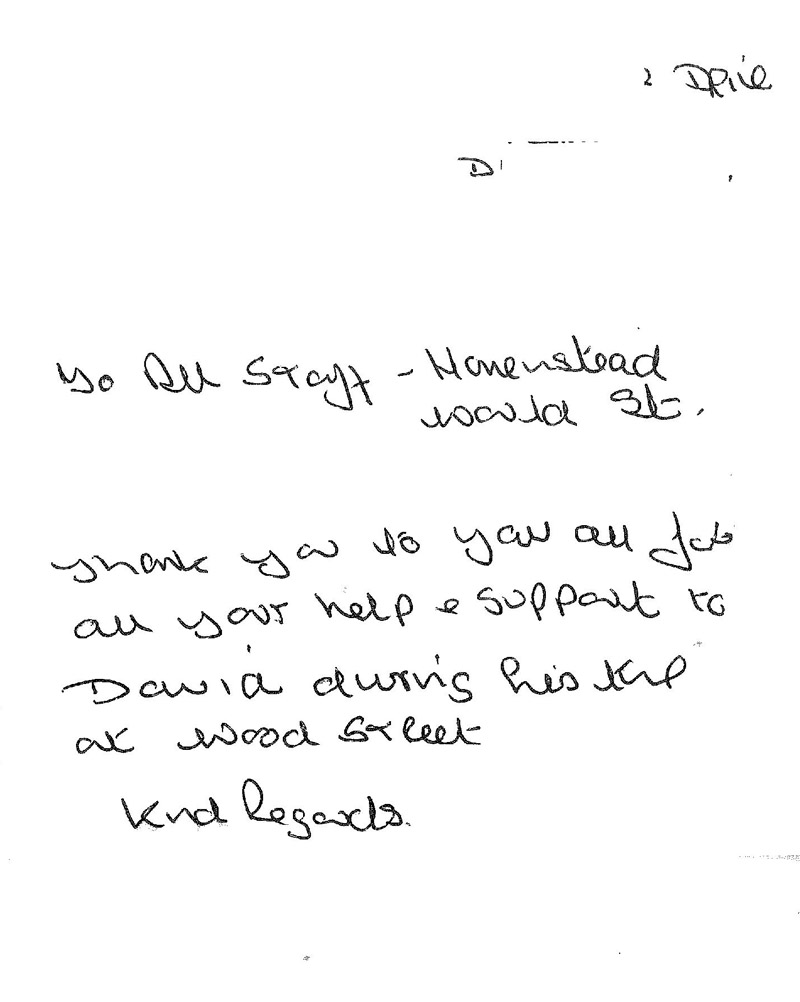 Drive
D
To All Staff - Homenstead
World St.
Thank you to you all for
all your help & support to
David during his time
at Wood Street
Kind Regards.